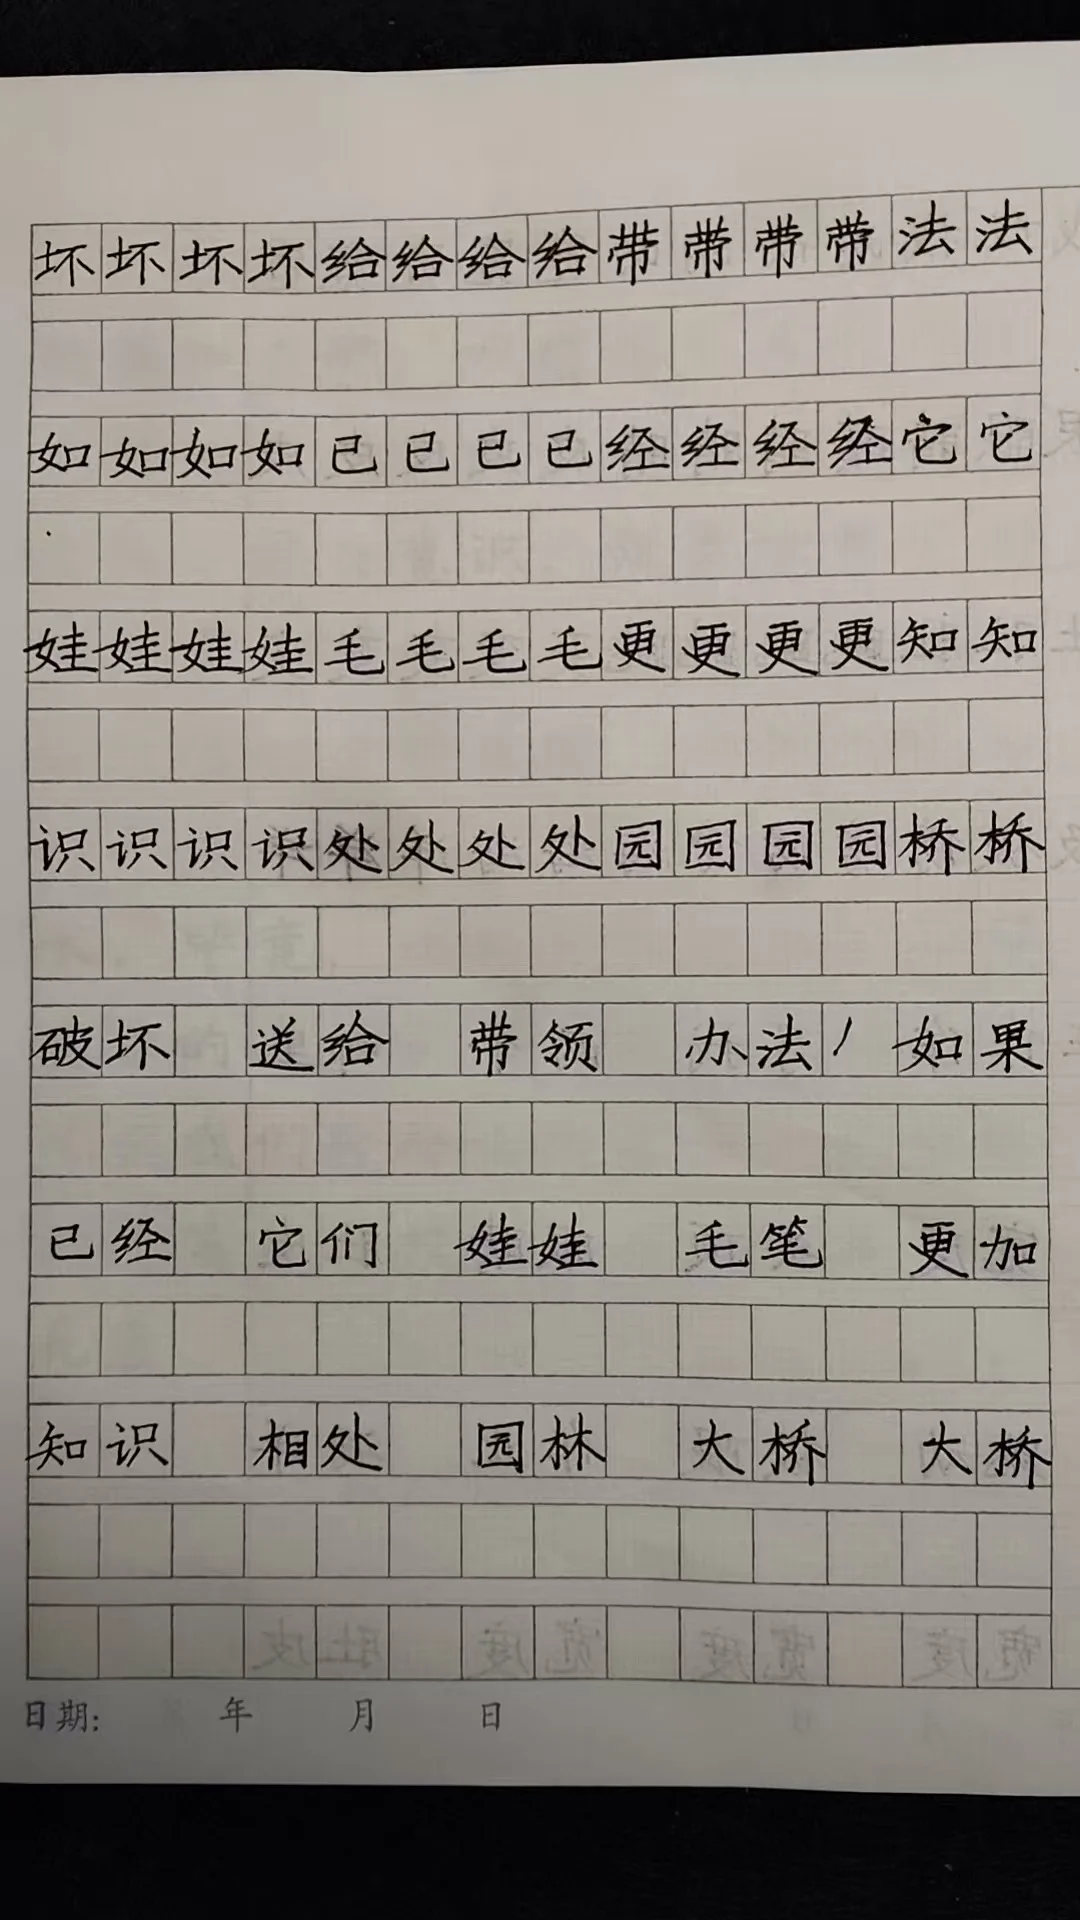 坏坏坏坏给给给给带带带带法法
如如如如已已已已经经经经它它
娃娃娃娃毛毛毛毛更更更更知知
识识识识处处处处园园园园桥桥
破坏 送给 带领 办法 / 如果
已经 它们 娃娃 毛笔 更加
知识 相处 园林 大桥 大桥
日期: 年 月 日